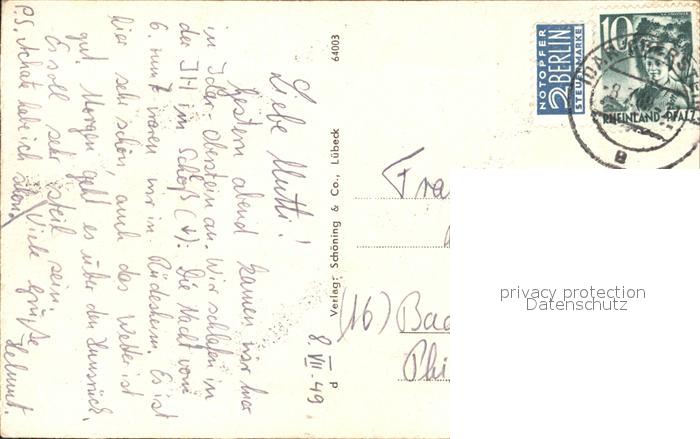 Liebe Mutti!
Gestern abend kamen wir hier
in Idar-Oberstein an. Wir schlafen in
der JH im Schloß (↓). Die Nacht vom
6. zum 7. waren wir in Rüdesheim. Es ist
hier sehr schön, auch das Wetter ist
gut. Morgen geht es über den Hunsrück.
Es soll sehr steil sein.
Viele Grüße
Helmut.
P.S. Achate hab ich schon.
8. VII. 49
P
Verlag: Schöning & Co., Lübeck
64003
NOTOPFER
2 BERLIN
STEUERMARKE
10
RHEINLAND-PFALZ
IDAR-OBERS
B
Fra
(16) Bad
Phi
privacy protection
Datenschutz